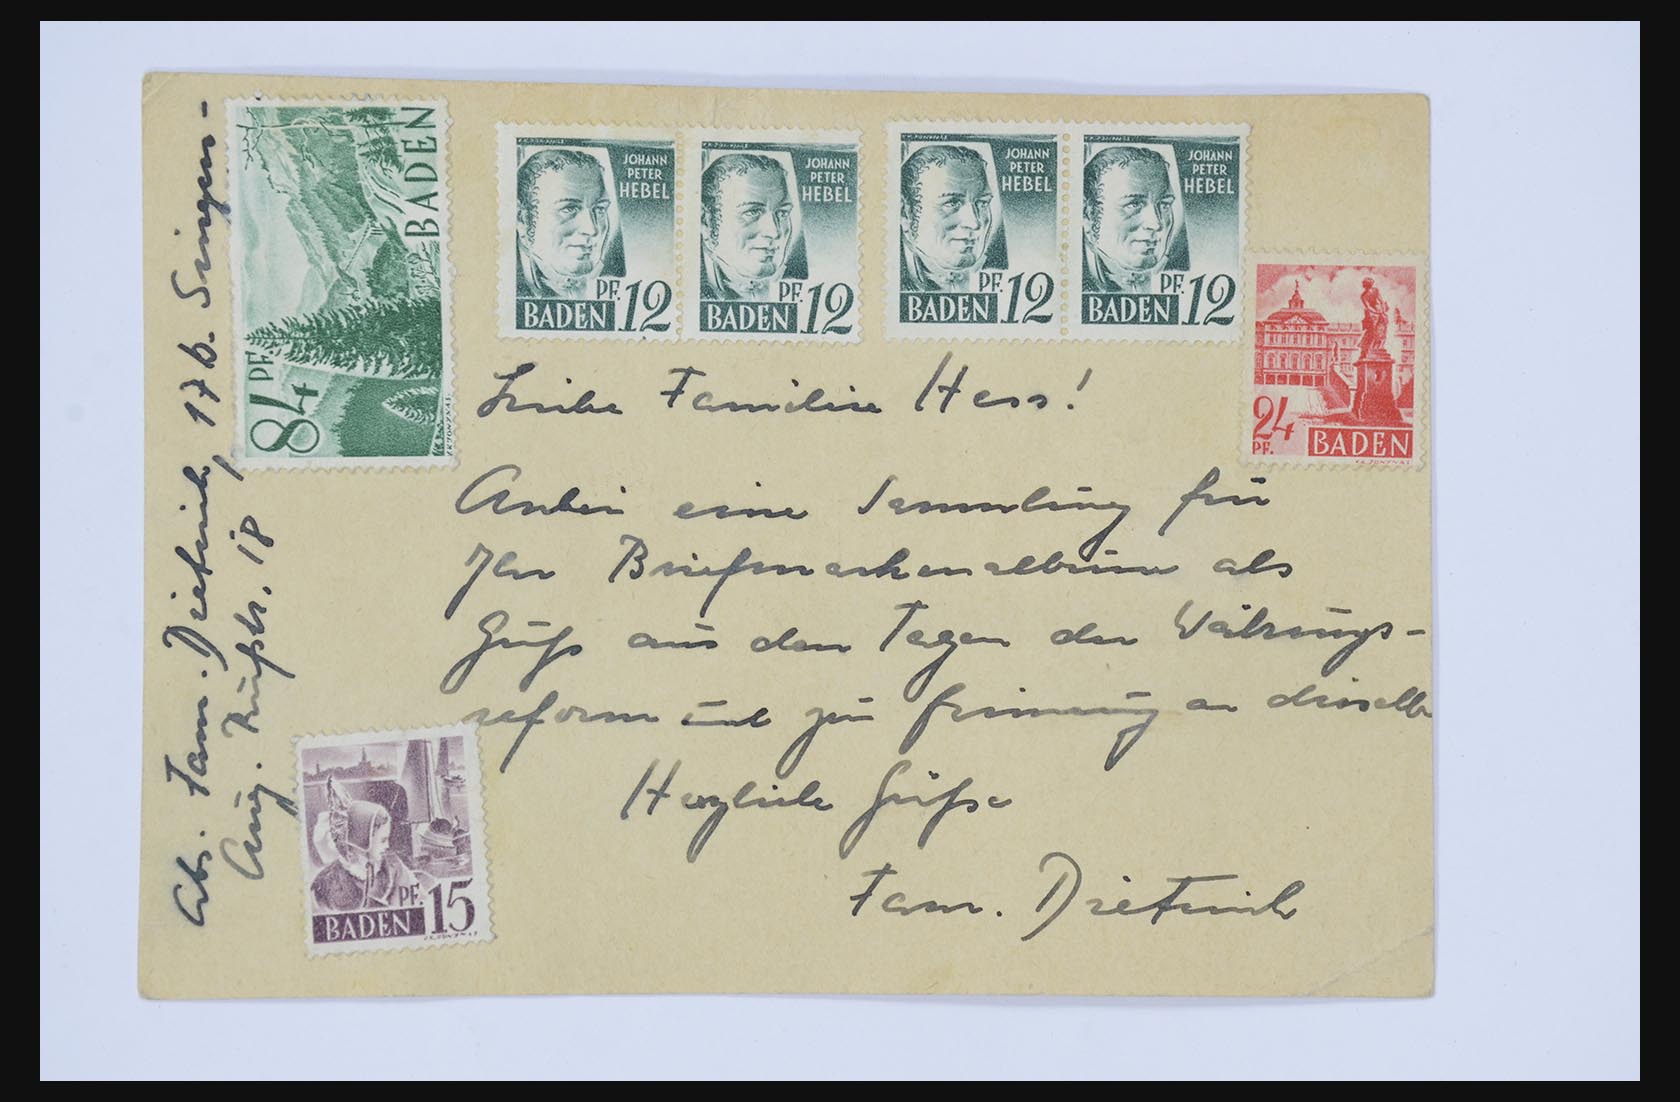 BADEN
84 PF.
JOHANN
PETER
HEBEL
PF. 12
BADEN
JOHANN
PETER
HEBEL
PF. 12
BADEN
JOHANN
PETER
HEBEL
PF. 12
BADEN
JOHANN
PETER
HEBEL
PF. 12
BADEN
24
PF.
BADEN
Liebe Familie Hess!
Anbei eine Sammlung für
Ihr Briefmarkenalbum als
Gruß aus den Tagen der Währungs-
reform und zur Erinnerung an dieselbe
Herzliche Grüße
Fam. Dietrich
PF. 15
BADEN
Abs. Fam. Dietrich, 17b. Singen-
Aug. Rufstr. 18